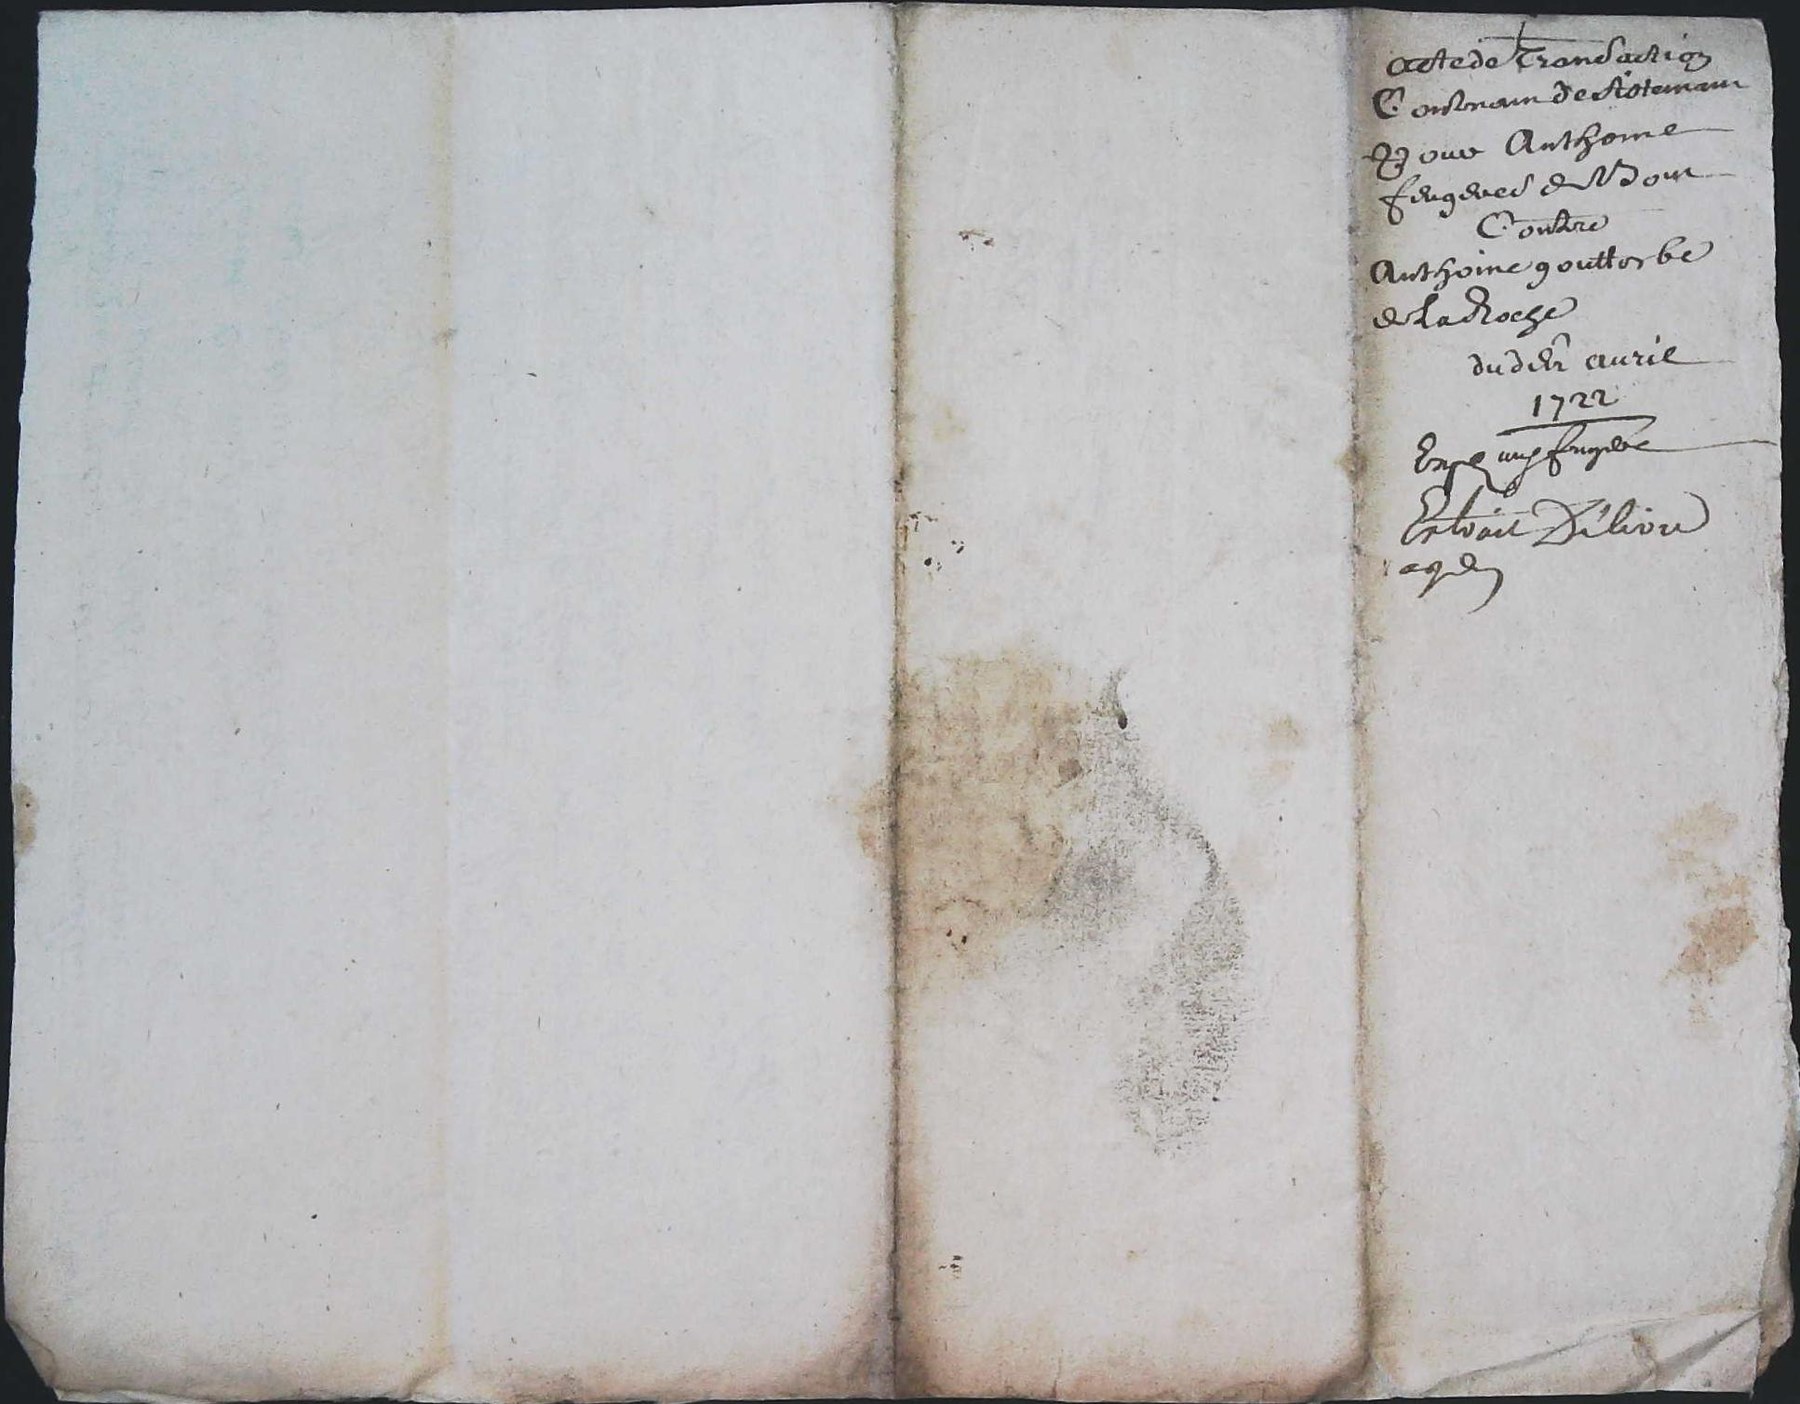 acte de Transaction
Contenam desistemam
Pour Anthoine
feugered de Bour
Contre
Anthoine gouttorbe
de La Roche
du der avril
1722
Exp feugere
Extrait Délivré